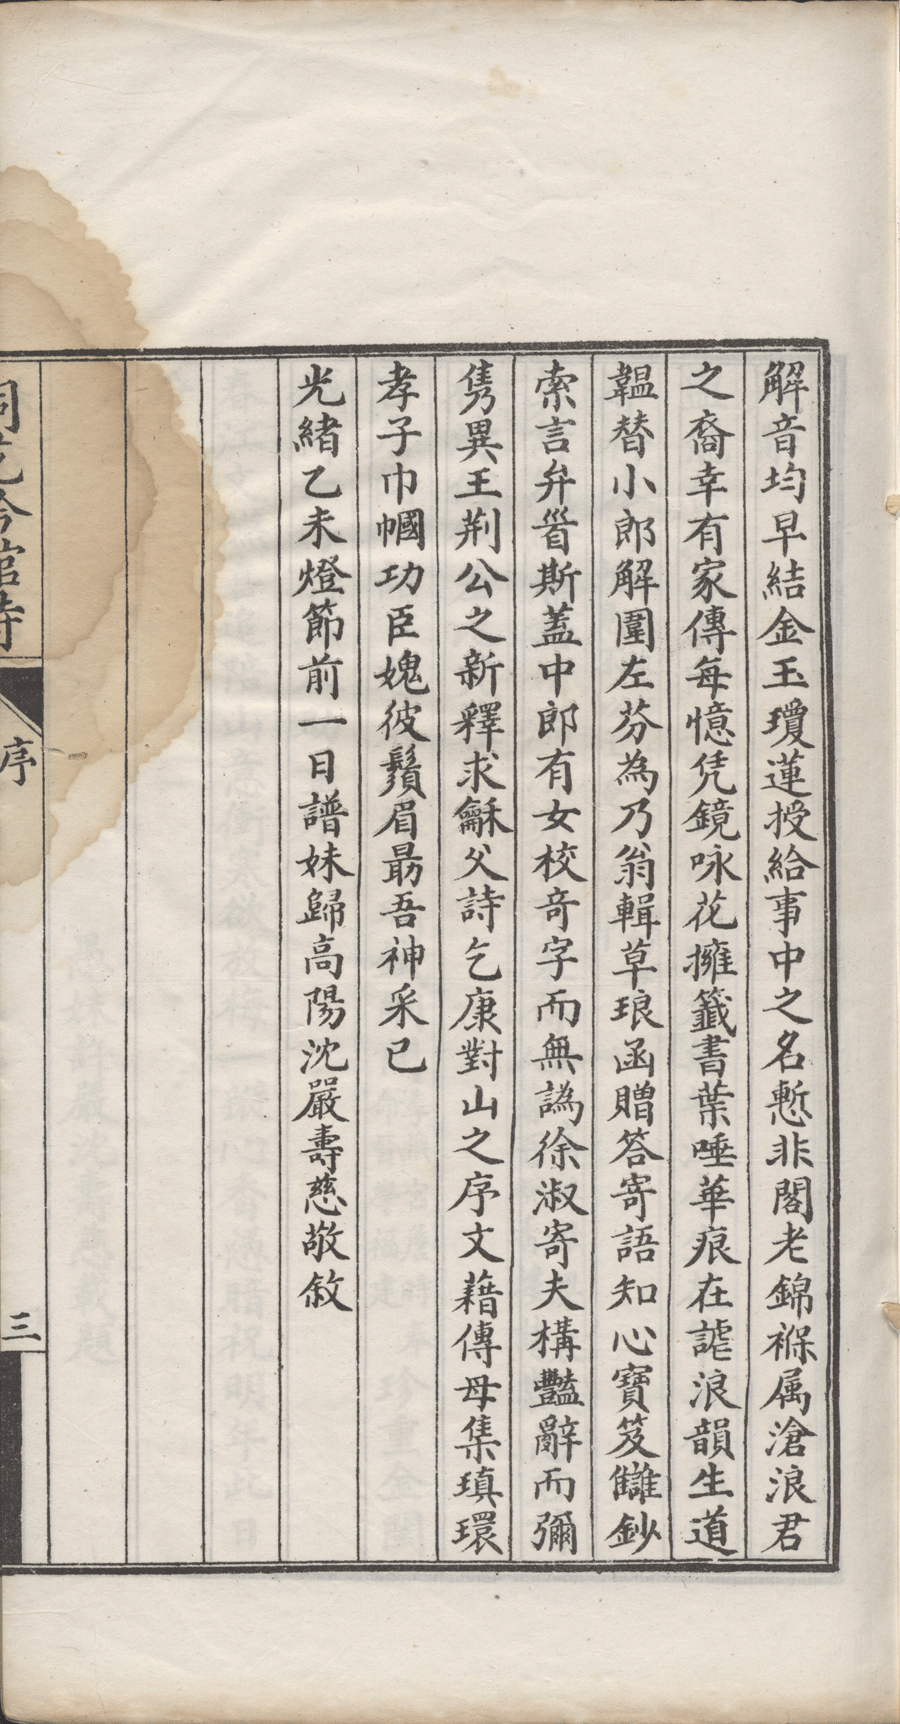 解音均早結金玉瓊蓮授給事中之名慙非閣老錦褓属滄浪君
之裔幸有家傳每憶凭鏡咏花擁籤書葉唾華痕在謔浪韻生道
韞替小郎解圍左芬為乃翁輯草琅函贈答寄語知心寶笈讎鈔
索言弁眷斯蓋中郎有女校奇字而無譌徐淑寄夫構豔辭而彌
雋異王荆公之新釋求龢父詩乞康對山之序文藉傳母集瑱環
孝子巾幗功臣媿彼鬚眉勗吾神采已
光緒乙未燈節前一日譜妹歸高陽沈嚴壽慈敬敘
桐花吟館詩
序
三